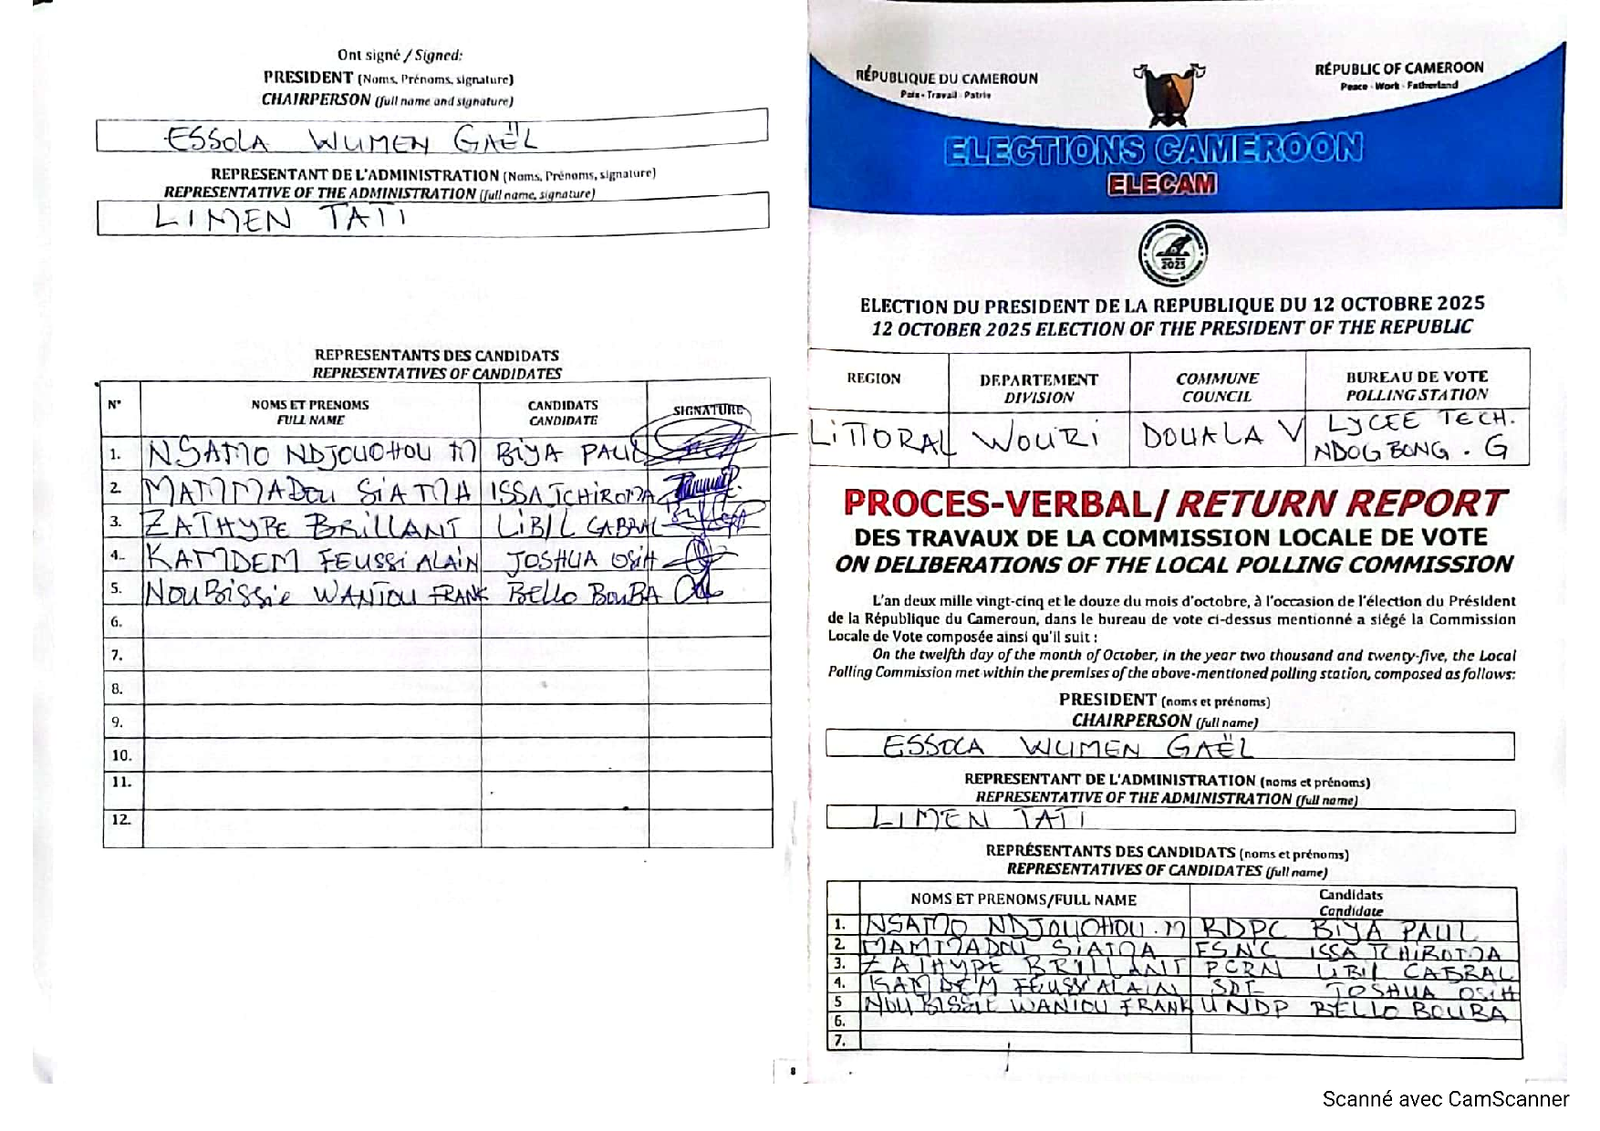 Ont signé / Signed:
PRESIDENT (Noms, Prénoms, signature)
CHAIRPERSON (full name and signature)
ESSOLA WUMEN GAËL
REPRESENTANT DE L'ADMINISTRATION (Noms, Prénoms, signature)
REPRESENTATIVE OF THE ADMINISTRATION (full name, signature)
LIMEN TATI
REPRESENTANTS DES CANDIDATS
REPRESENTATIVES OF CANDIDATES
N° NOMS ET PRENOMS CANDIDATS SIGNATURE
FULL NAME CANDIDATE
1. NSAMO NDJOUOHOU M BIYA PAUL
2. MAMMADOU SIAMA ISSA TCHIROMA
3. ZATHYPE BRILLANT LIBIL CABRAL
4. KAMDEM FEUSSI ALAIN JOSHUA OSIH
5. NOUBISSIE WANIOU FRANK BELLO BOUBA
6.
7.
8.
9.
10.
11.
12.
8
RÉPUBLIQUE DU CAMEROUN
Paix - Travail - Patrie
RÉPUBLIC OF CAMEROON
Peace - Work - Fatherland
ELECTIONS CAMEROON
ELECAM
2025
ELECTION DU PRESIDENT DE LA REPUBLIQUE DU 12 OCTOBRE 2025
12 OCTOBER 2025 ELECTION OF THE PRESIDENT OF THE REPUBLIC
REGION DEPARTEMENT COMMUNE BUREAU DE VOTE
DIVISION COUNCIL POLLING STATION
LITTORAL WOURI DOUALA V LYCEE TECH.
NDOGBONG . G
PROCES-VERBAL/ RETURN REPORT
DES TRAVAUX DE LA COMMISSION LOCALE DE VOTE
ON DELIBERATIONS OF THE LOCAL POLLING COMMISSION
L'an deux mille vingt-cinq et le douze du mois d'octobre, à l'occasion de l'élection du Président
de la République du Cameroun, dans le bureau de vote ci-dessus mentionné a siégé la Commission
Locale de Vote composée ainsi qu'il suit :
On the twelfth day of the month of October, in the year two thousand and twenty-five, the Local
Polling Commission met within the premises of the above-mentioned polling station, composed as follows:
PRESIDENT (noms et prénoms)
CHAIRPERSON (full name)
ESSOLA WUMEN GAËL
REPRESENTANT DE L'ADMINISTRATION (noms et prénoms)
REPRESENTATIVE OF THE ADMINISTRATION (full name)
LIMEN TATI
REPRÉSENTANTS DES CANDIDATS (noms et prénoms)
REPRESENTATIVES OF CANDIDATES (full name)
NOMS ET PRENOMS/FULL NAME Candidats
Candidate
1. NSAMO NDJOUOHOU . M RDPC BIYA PAUL
2. MAMMADOU SIAMA FSNC ISSA TCHIROMA
3. ZATHYPE BRILLANT PCRN LIBIL CABRAL
4. KAMDEM FEUSSI ALAIN SDF JOSHUA OSIH
5 NOUBISSIE WANIOU FRANK UNDP BELLO BOUBA
6.
7.
Scanné avec CamScanner